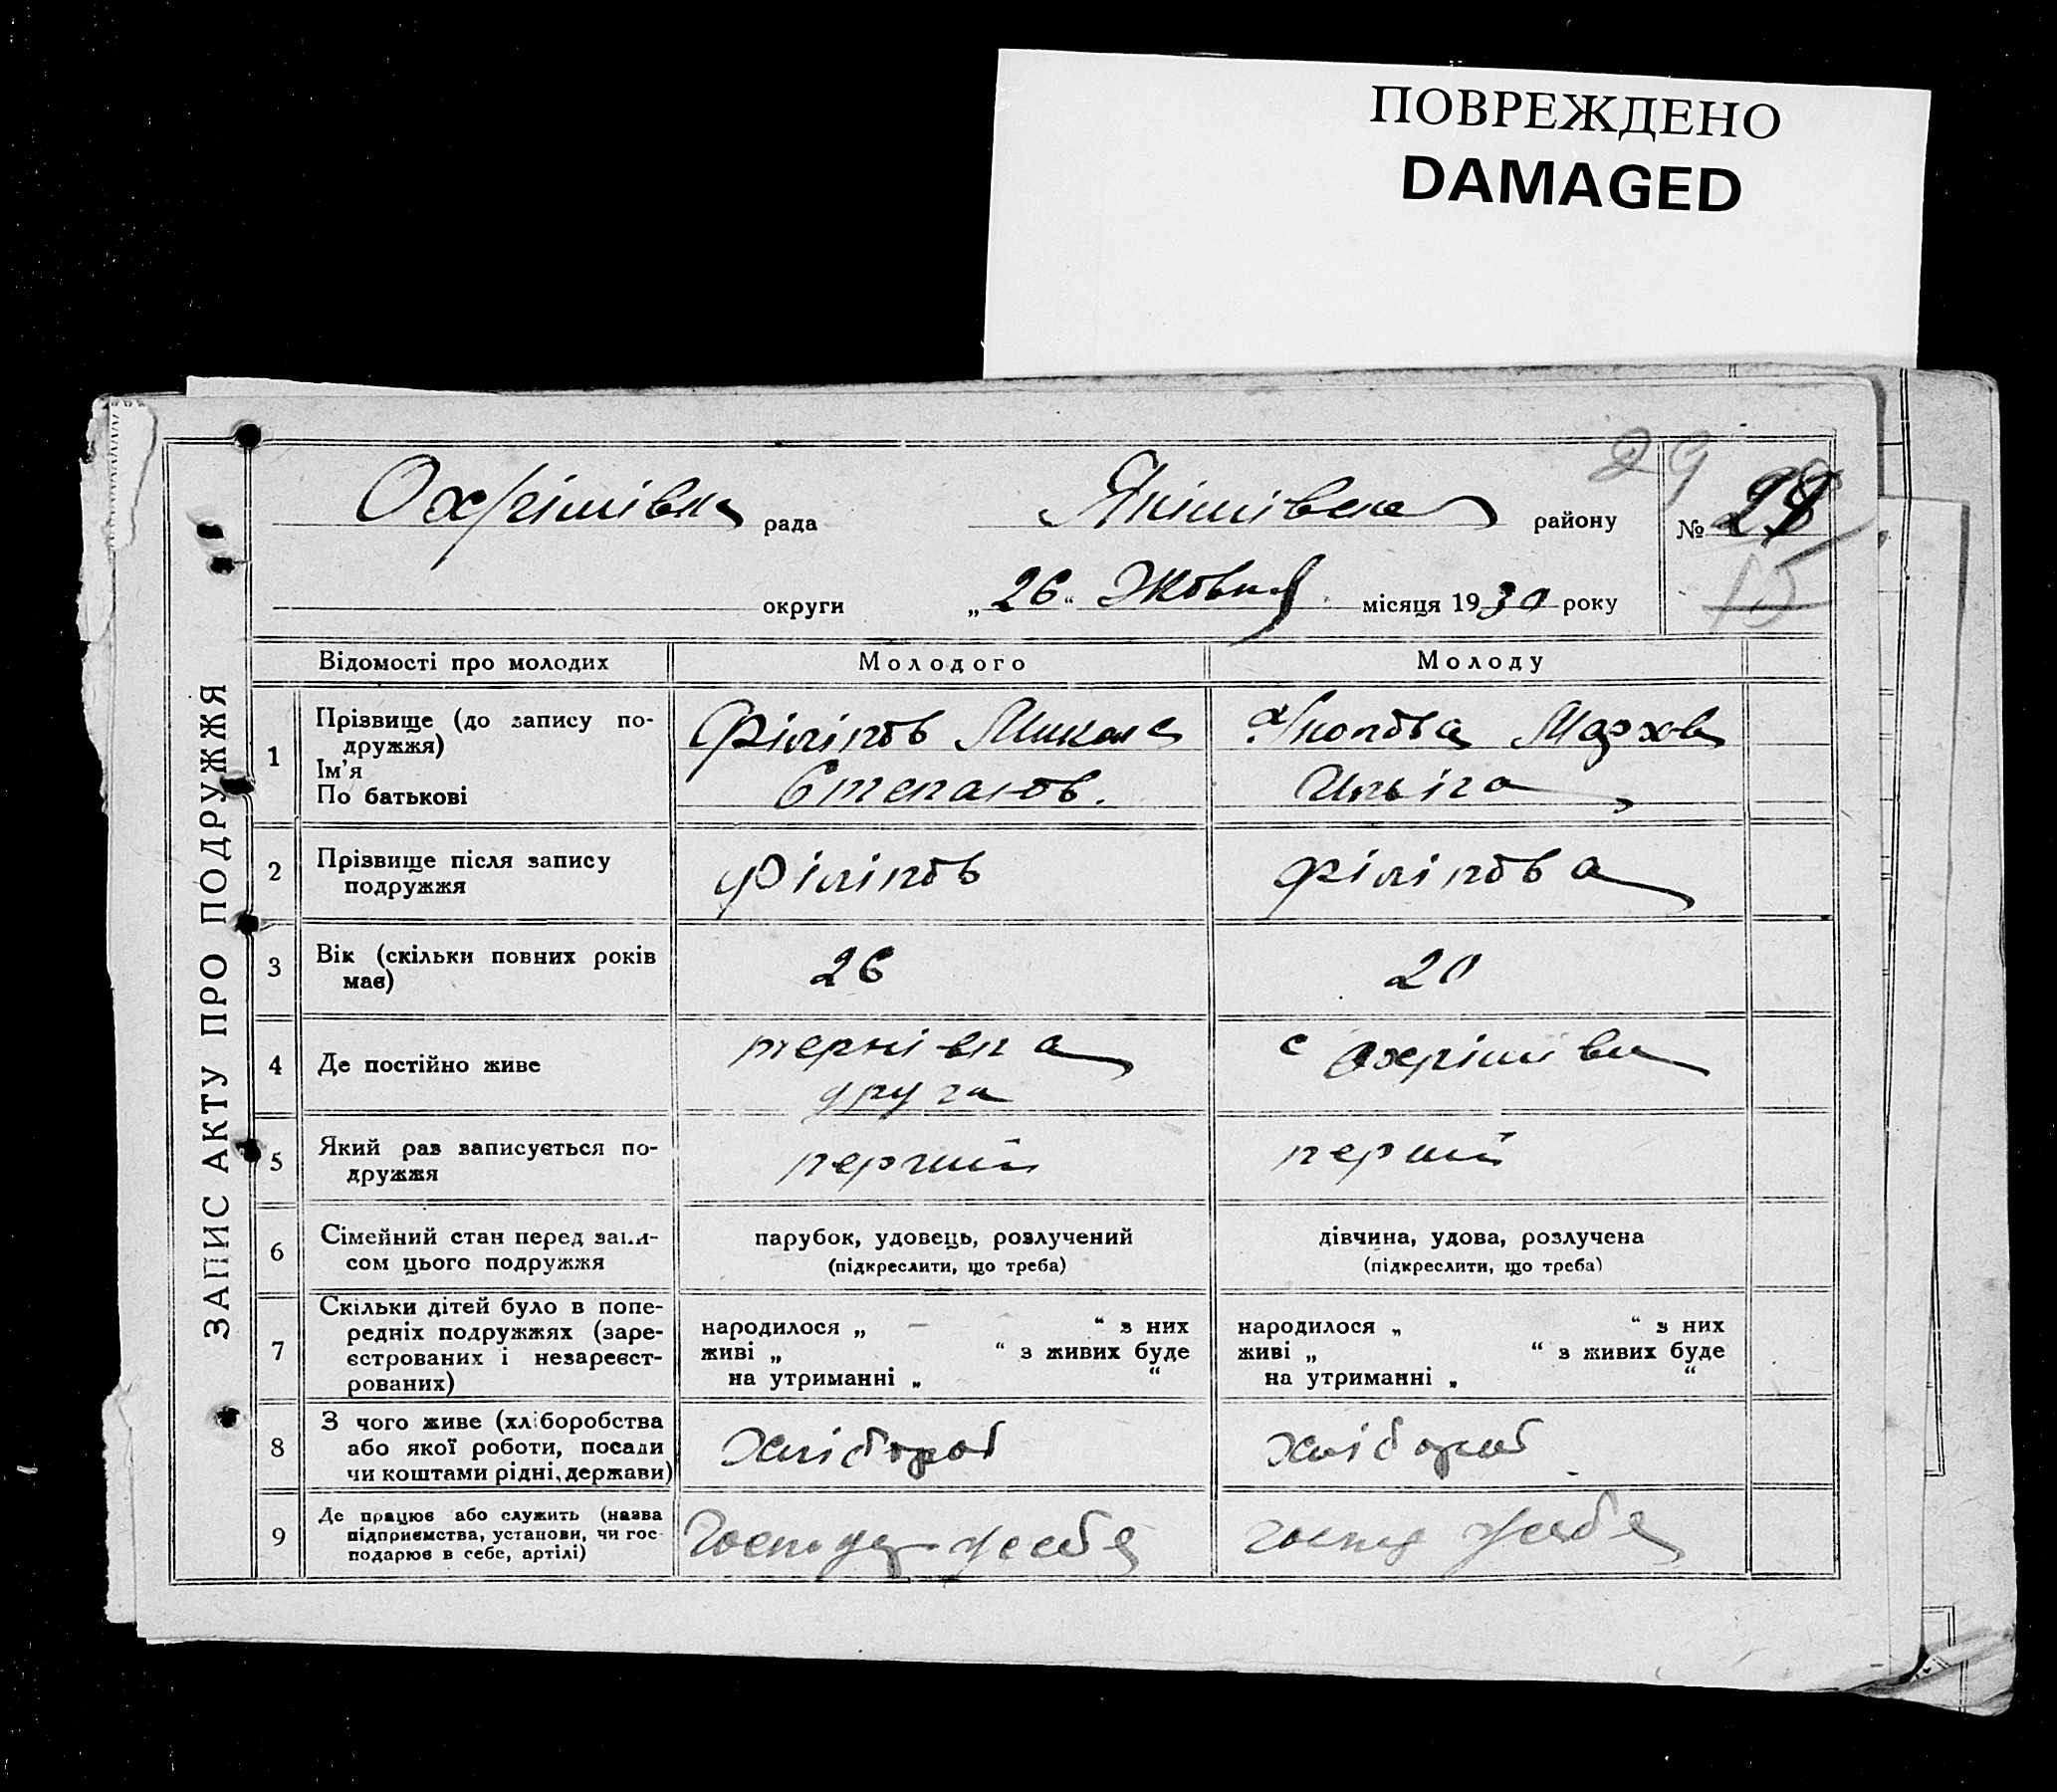 ПОВРЕЖДЕНО
DAMAGED
29
Охрімівка рада Якімівска району № 28
15
округи „26“ Жовтня місяця 1930 року
ЗАПИС АКТУ ПРО ПОДРУЖЖЯ
Відомості про молодих Молодого Молоду
1 Прізвище (до запису по-
дружжя)
Ім'я
По батькові
Філіпов Микола
Степанов.
Ильіна
2 Прізвище після запису
подружжя
Філіпов Філіпова
3 Вік (скільки повних років
має)
26 20
4 Де постійно живе
тернівка
друга
с Охрімівка
5 Який раз записується по-
дружжя
перший перший
6 Сімейний стан перед запи-
сом цього подружжя
парубок, удовець, розлучений
(підкреслити, що треба)
дівчина, удова, розлучена
(підкреслити, що треба)
7 Скільки дітей було в попе-
редніх подружжях (заре-
єстрованих і незареєст-
рованих)
народилося „ — “ з них
живі „ “ з живих буде
на утриманні „ “
народилося „ “ з них
живі „ “ з живих буде
на утриманні „ “
8 З чого живе (хліборобства
або якої роботи, посади
чи коштами рідні, держави)
Хлібороб хлібороб
9 Де працює або служить (назва
підприємства, установи, чи гос-
подарює в себе, артілі)